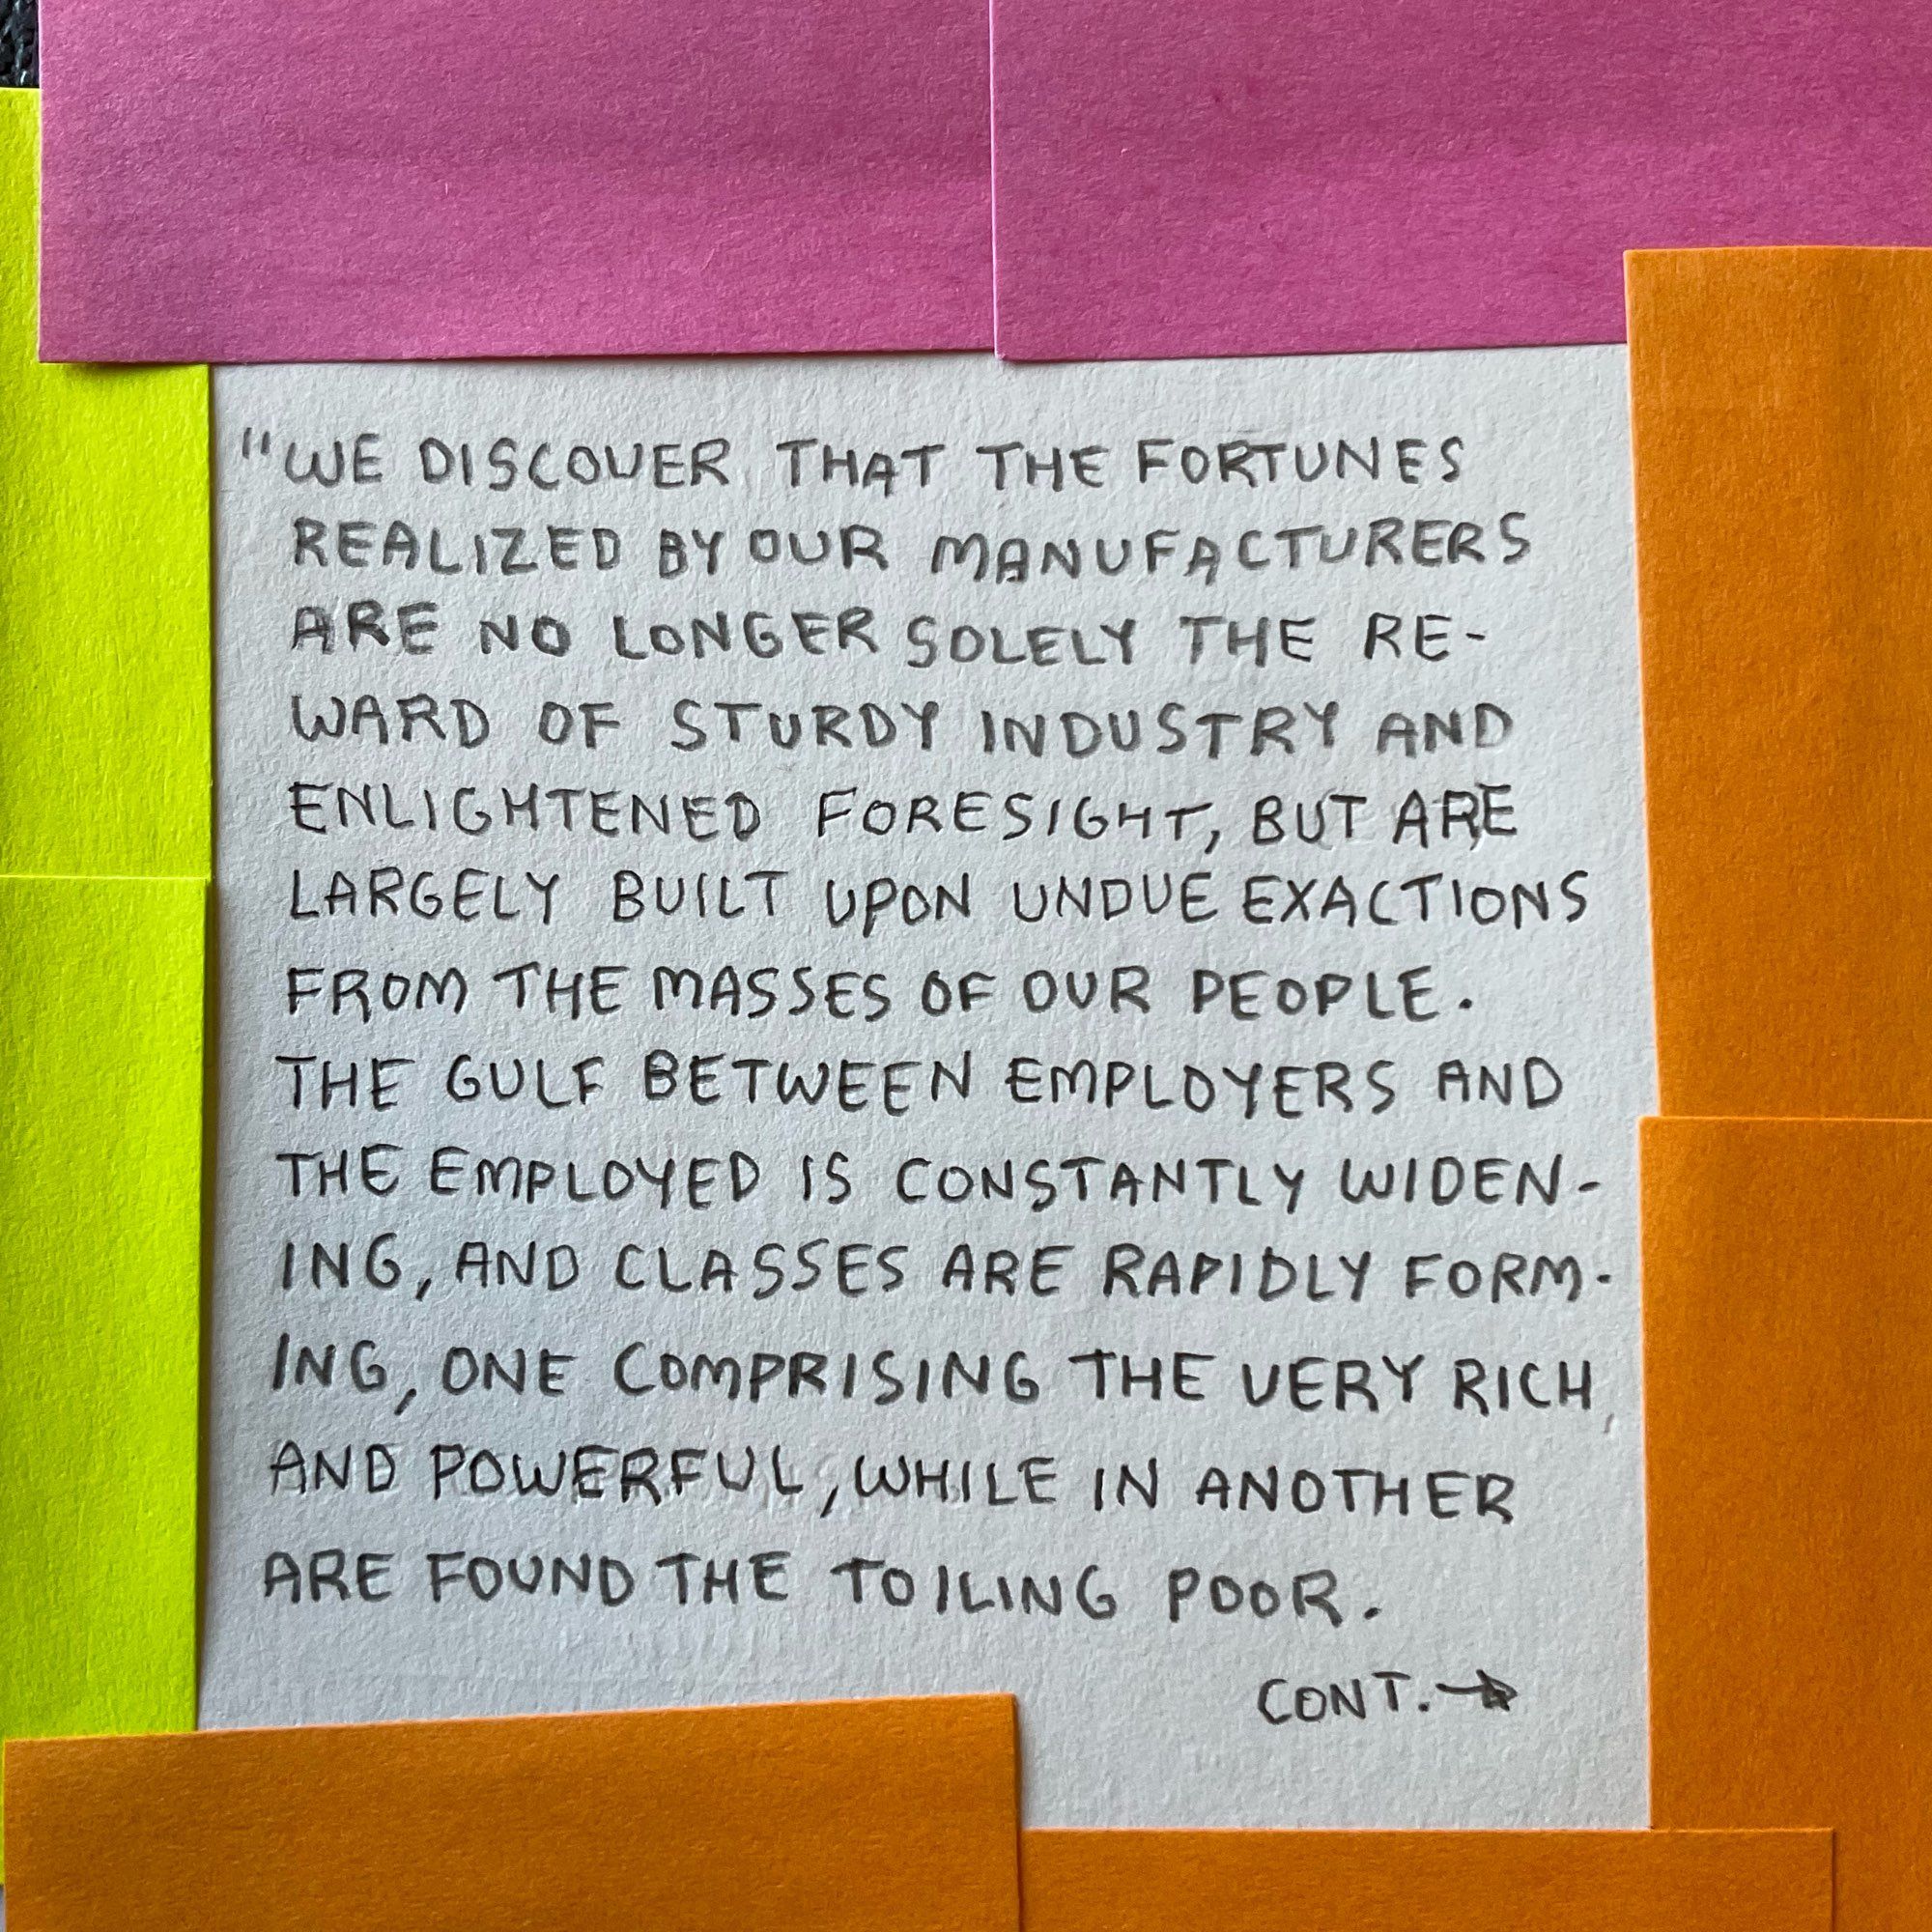 "WE DISCOVER THAT THE FORTUNES
REALIZED BY OUR MANUFACTURERS
ARE NO LONGER SOLELY THE RE-
WARD OF STURDY INDUSTRY AND
ENLIGHTENED FORESIGHT, BUT ARE
LARGELY BUILT UPON UNDUE EXACTIONS
FROM THE MASSES OF OUR PEOPLE.
THE GULF BETWEEN EMPLOYERS AND
THE EMPLOYED IS CONSTANTLY WIDEN-
ING, AND CLASSES ARE RAPIDLY FORM-
ING, ONE COMPRISING THE VERY RICH
AND POWERFUL, WHILE IN ANOTHER
ARE FOUND THE TOILING POOR.
CONT.→